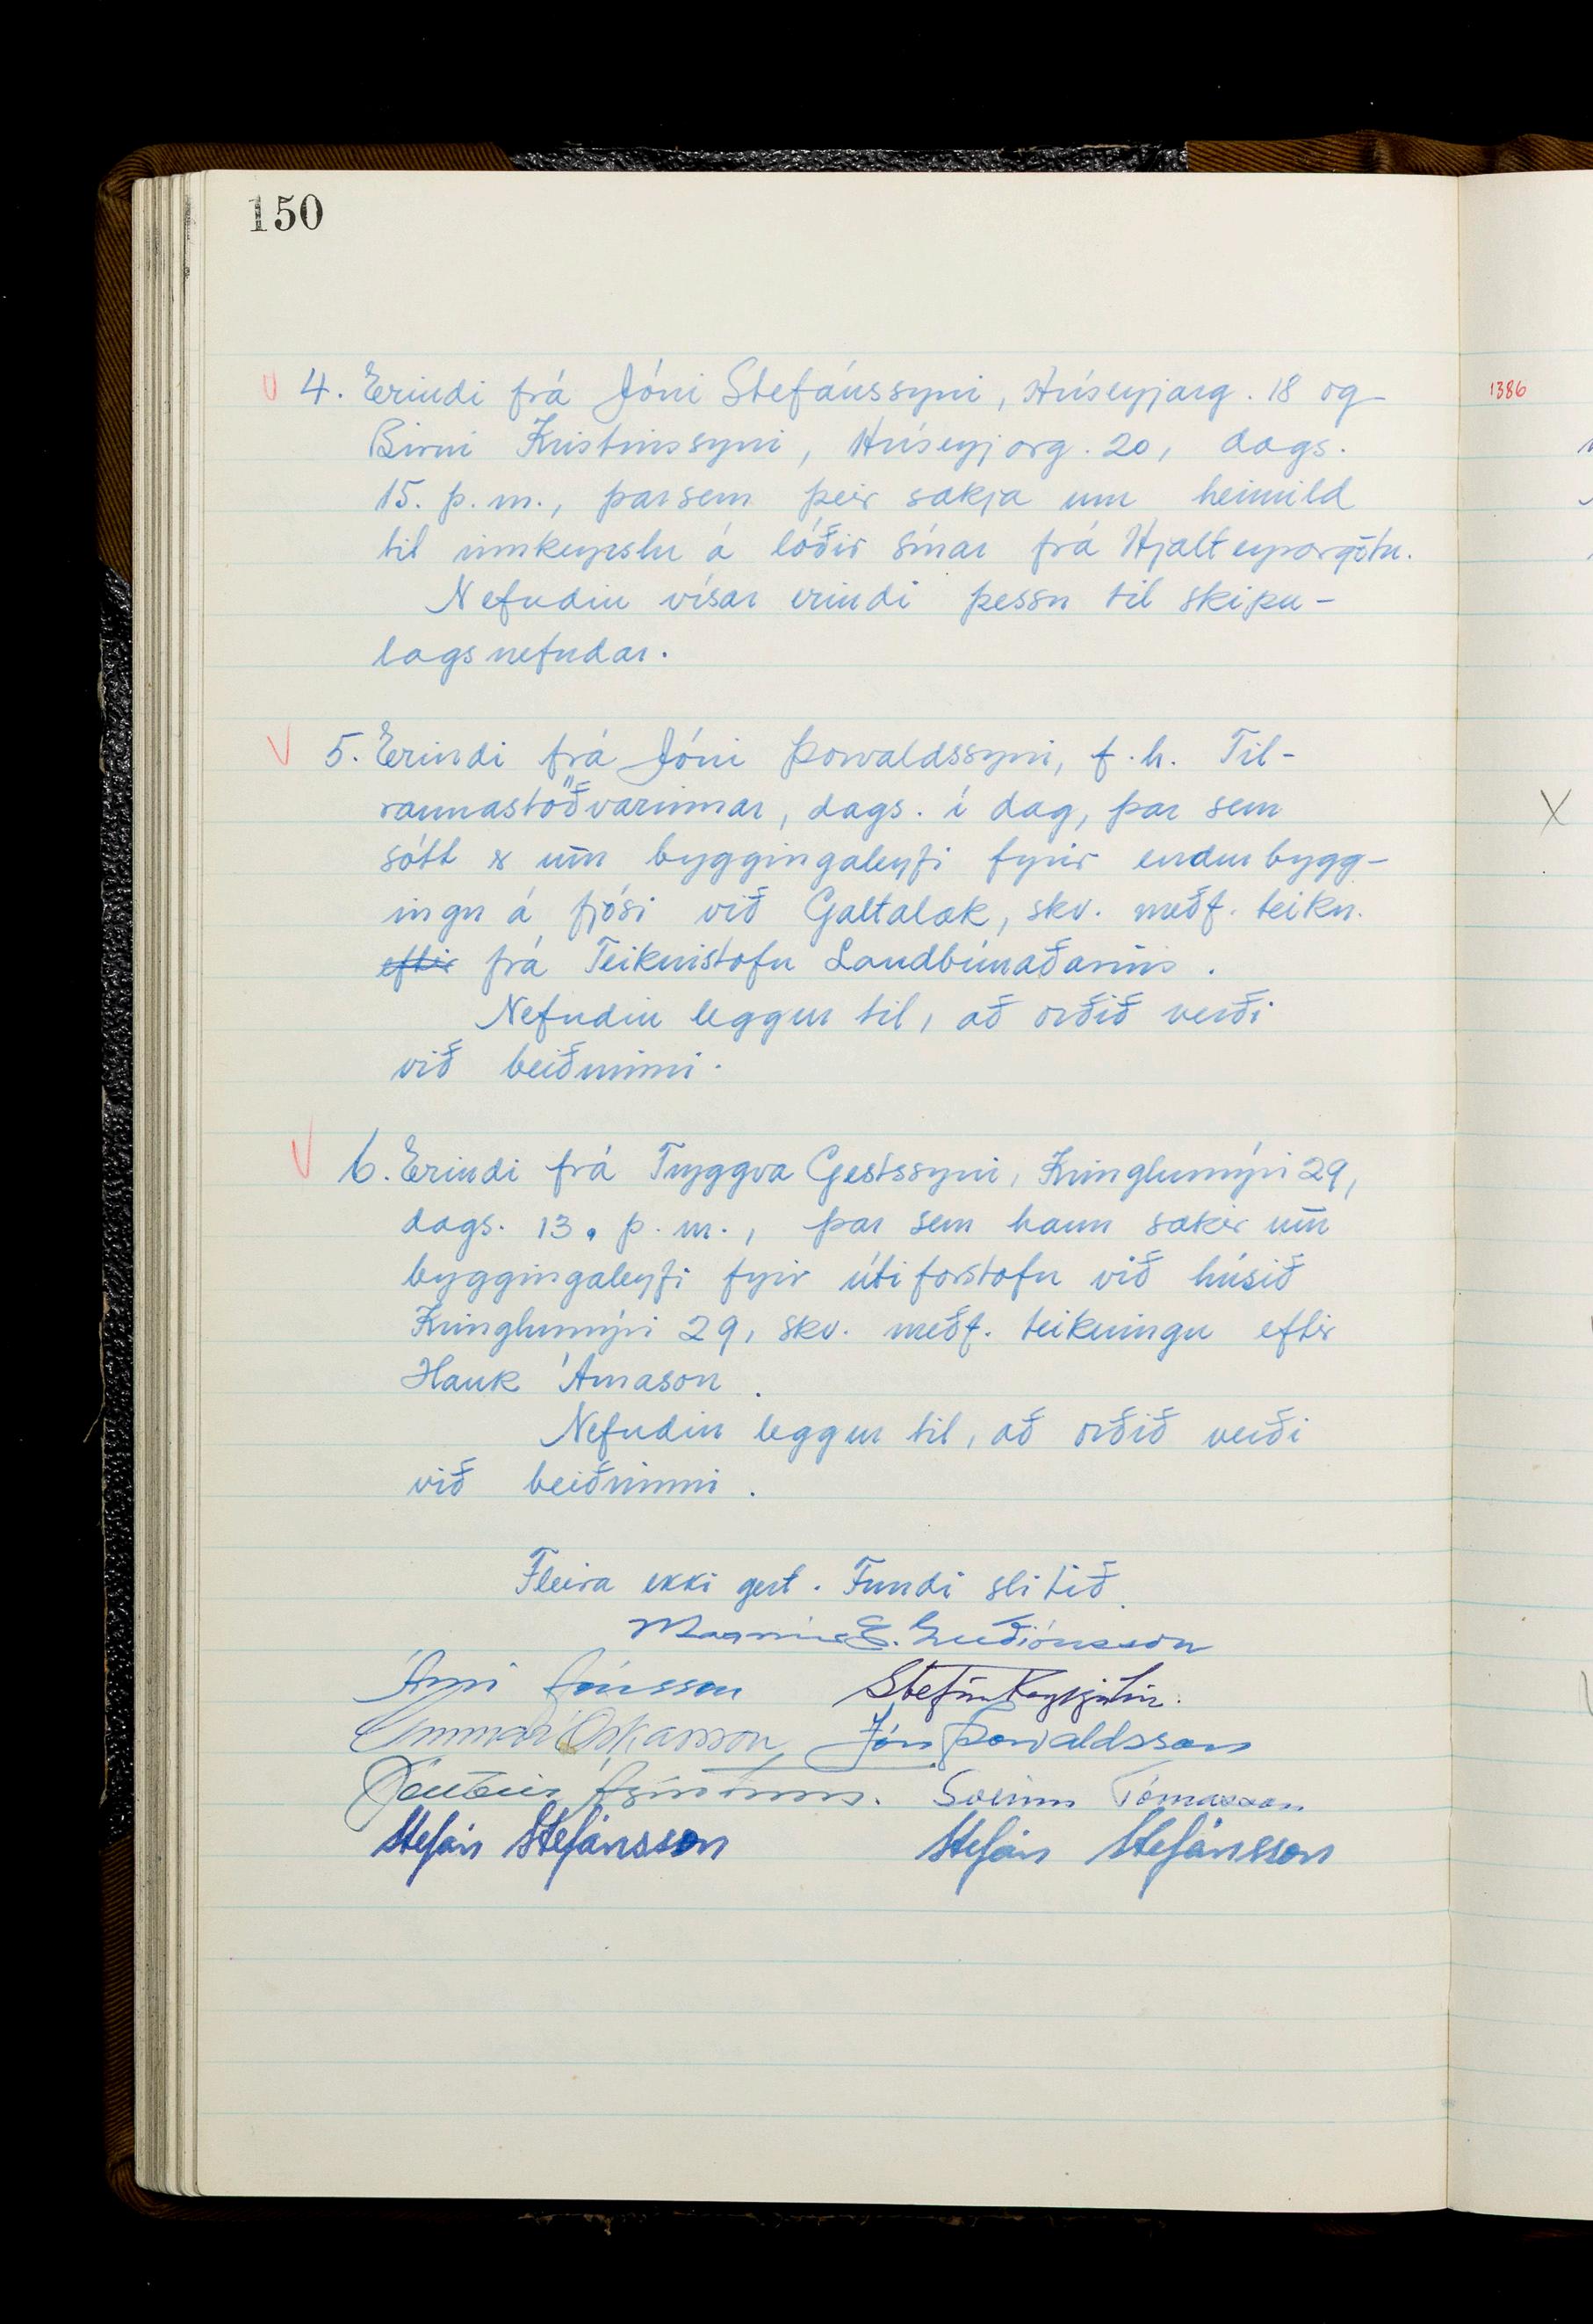 150
4. Erindi frá Jóni Stefánssyni, Húseyjarg. 18 og
Birni Kristinssyni, Húseyjarg. 20, dags.
15. þ.m., þar sem þeir sækja um heimild
til innkeyrslu á lóðir sínar frá Hjalteyrargötu.
Nefndin vísar erindi þessu til skipu-
lagsnefndar.
5. Erindi frá Jóni Þorvaldssyni, f.h. Til-
raunastöðvarinnar, dags. í dag, þar sem
sótt er um byggingaleyfi fyrir endurbygg-
ingu á fjósi við Galtalæk, skv. meðf. teikn.
eftir frá Teiknistofu Landbúnaðarins.
Nefndin leggur til, að orðið verði
við beiðninni.
6. Erindi frá Tryggva Gestssyni, Kringlumýri 29,
dags. 13. þ.m., þar sem hann sækir um
byggingaleyfi fyrir útiforstofu við húsið
Kringlumýri 29, skv. meðf. teikningu eftir
Hauk Árnason.
Nefndin leggur til, að orðið verði
við beiðninni.
Fleira ekki gert. Fundi slitið.
Magnús E. Guðjónsson
Árni Jónsson Stefán Reykjalín.
Gunnar Óskarsson Jón Þorvaldsson
Sveinn Tómasson
Stefán Stefánsson Stefán Stefánsson
1386
X